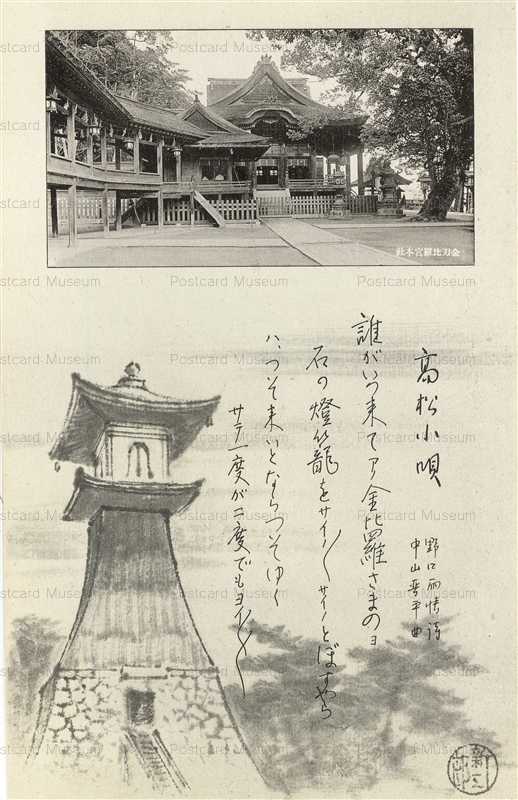 金刀比羅宮本社
高松小唄
野口雨情詩
中山晋平曲
誰がいつ来てア金比羅さまのヨ
石の燈籠をサイ〱サイ〱とぼすやら
ハ、つそ来いとならつそゆく
サテ一度が二度でもヨイ〱〱
Postcard Museum